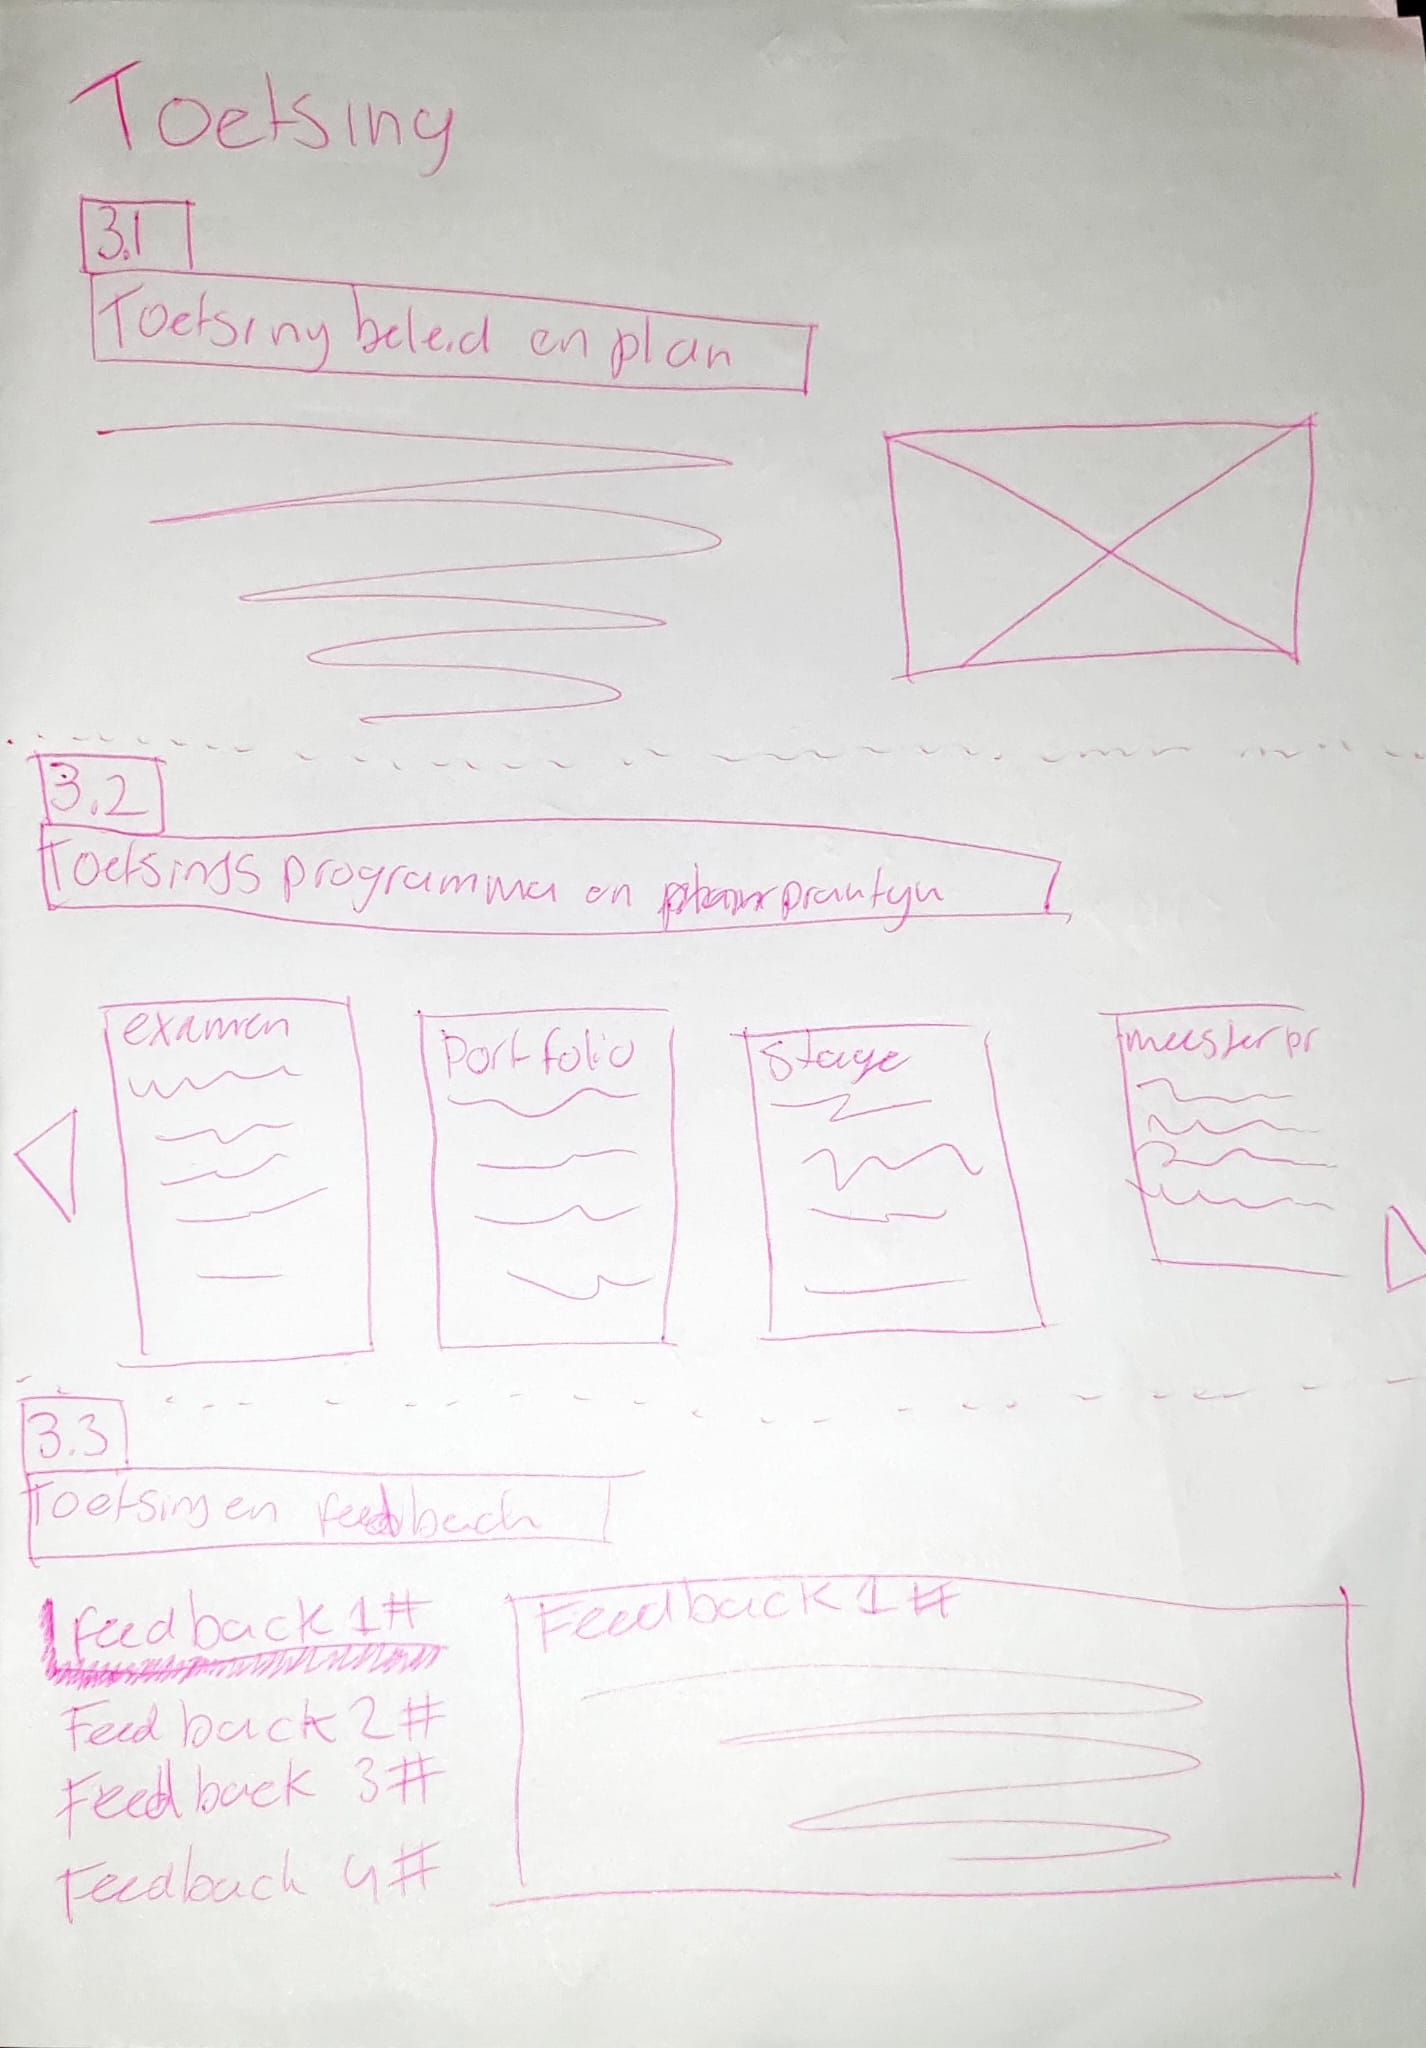 Toetsing
3.1
Toetsing beleid en plan
3.2
Toetsings programma en
examen
Portfolio
Stage
meesterpr
3.3
Toetsing en feedback
Feedback 1#
Feedback 1#
Feedback 2#
Feedback 3#
Feedback 4#